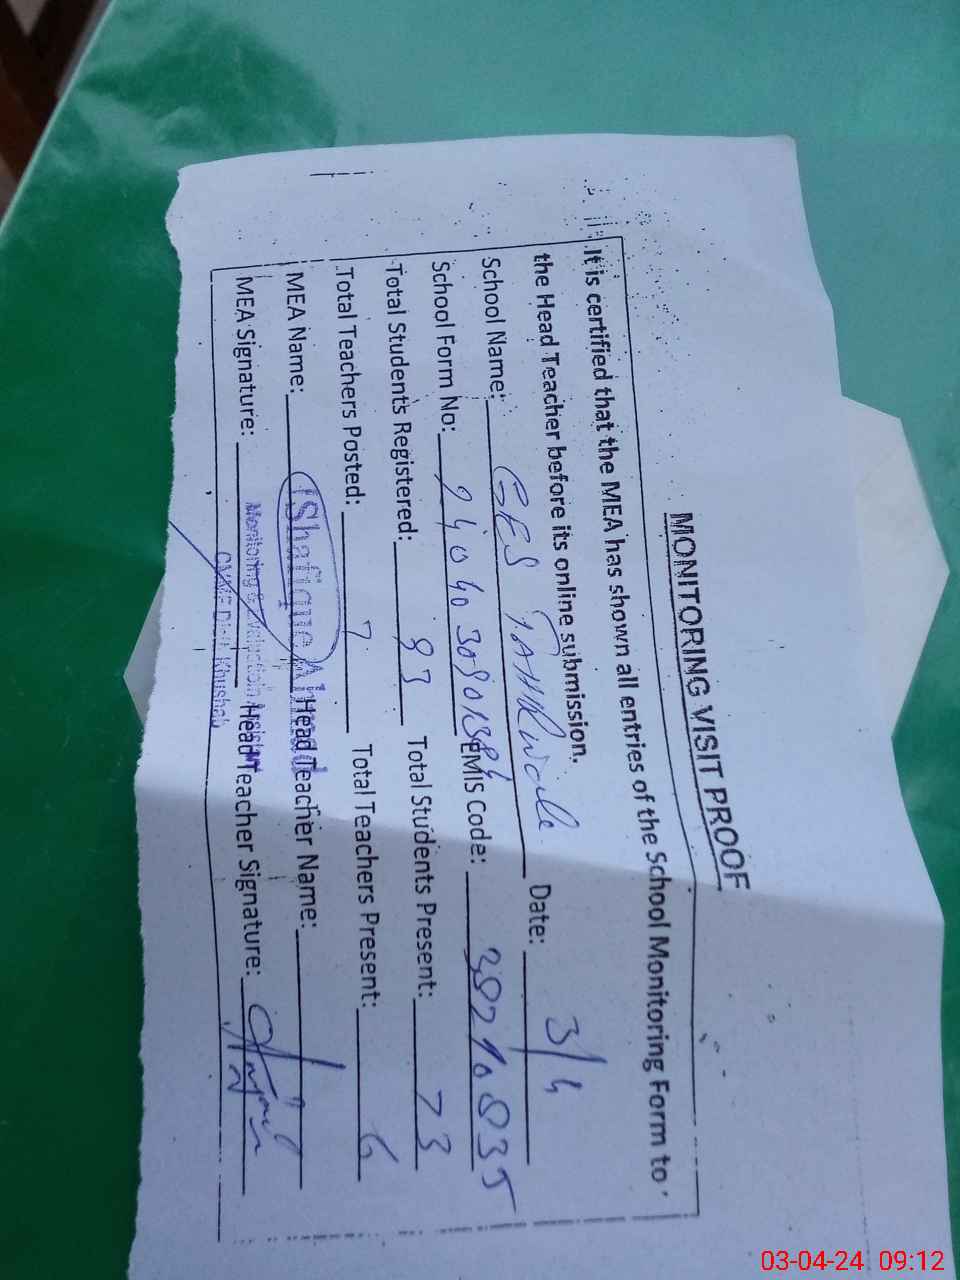 MONITORING VISIT PROOF
It is certified that the MEA has shown all entries of the School Monitoring Form to
the Head Teacher before its online submission.
School Name: GES Date: 3/4
School Form No: EMIS Code:
Total Students Registered: 83 Total Students Present: 73
Total Teachers Posted: 7 Total Teachers Present: 6
MEA Name: Shafique Ahmad Head Teacher Name:
Monitoring & Evaluation Assistant
MEA Signature: Head Teacher Signature:
CMMF Distt Khushab
03-04-24 09:12